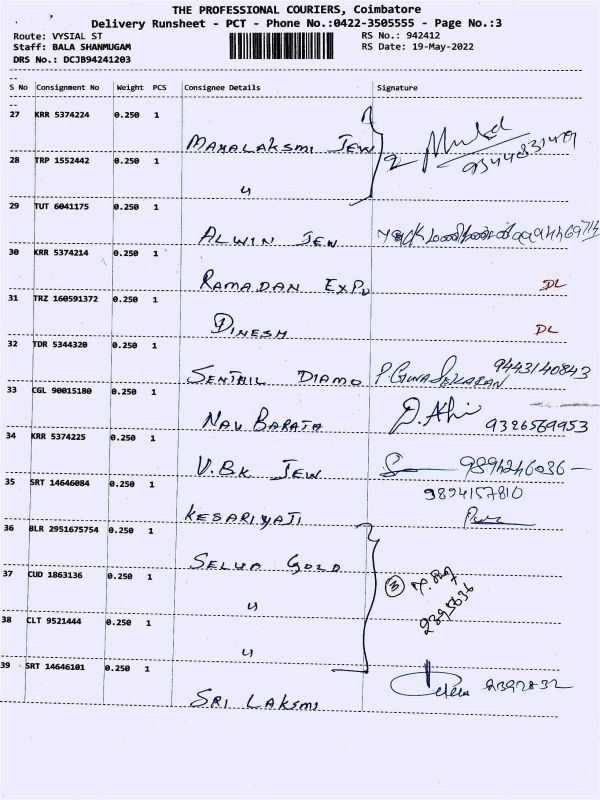 THE PROFESSIONAL COURIERS, Coimbatore
Delivery Runsheet - PCT - Phone No.:0422-3505555 - Page No.:3
Route: VYSIAL ST RS No.: 942412
Staff: BALA SHANMUGAM RS Date: 19-May-2022
DRS No.: DCJB94241203
S No Consignment No Weight PCS Consignee Details Signature
27 KRR 5374224 0.250 1
MAHALAKSMI JEW 2
28 TRP 1552442 0.250 1
"
29 TUT 6041175 0.250 1
ALWIN JEW
30 KRR 5374214 0.250 1
RAMADAN EXPO DL
31 TRZ 160591372 0.250 1
DINESH DL
32 TDR 5344320 0.250 1
SENTHIL DIAMO P. GUNASEKARAN 9443140843
33 CGL 90015180 0.250 1
NAV BARATA 9326569953
34 KRR 5374225 0.250 1
V.BK JEW 9894246036
35 SRT 14646084 0.250 1 9894157810
KESARIYAJI
36 BLR 2951675754 0.250 1
SELVA GOLD
37 CUD 1863136 0.250 1 3
" 2395636
38 CLT 9521444 0.250 1
"
39 SRT 14646101 0.250 1
SRI LAKSMI 2392832